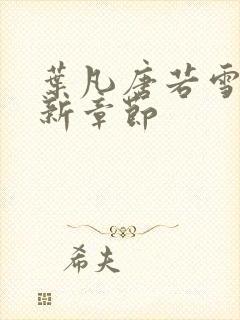 葉凡唐若雪
新章節
希夫